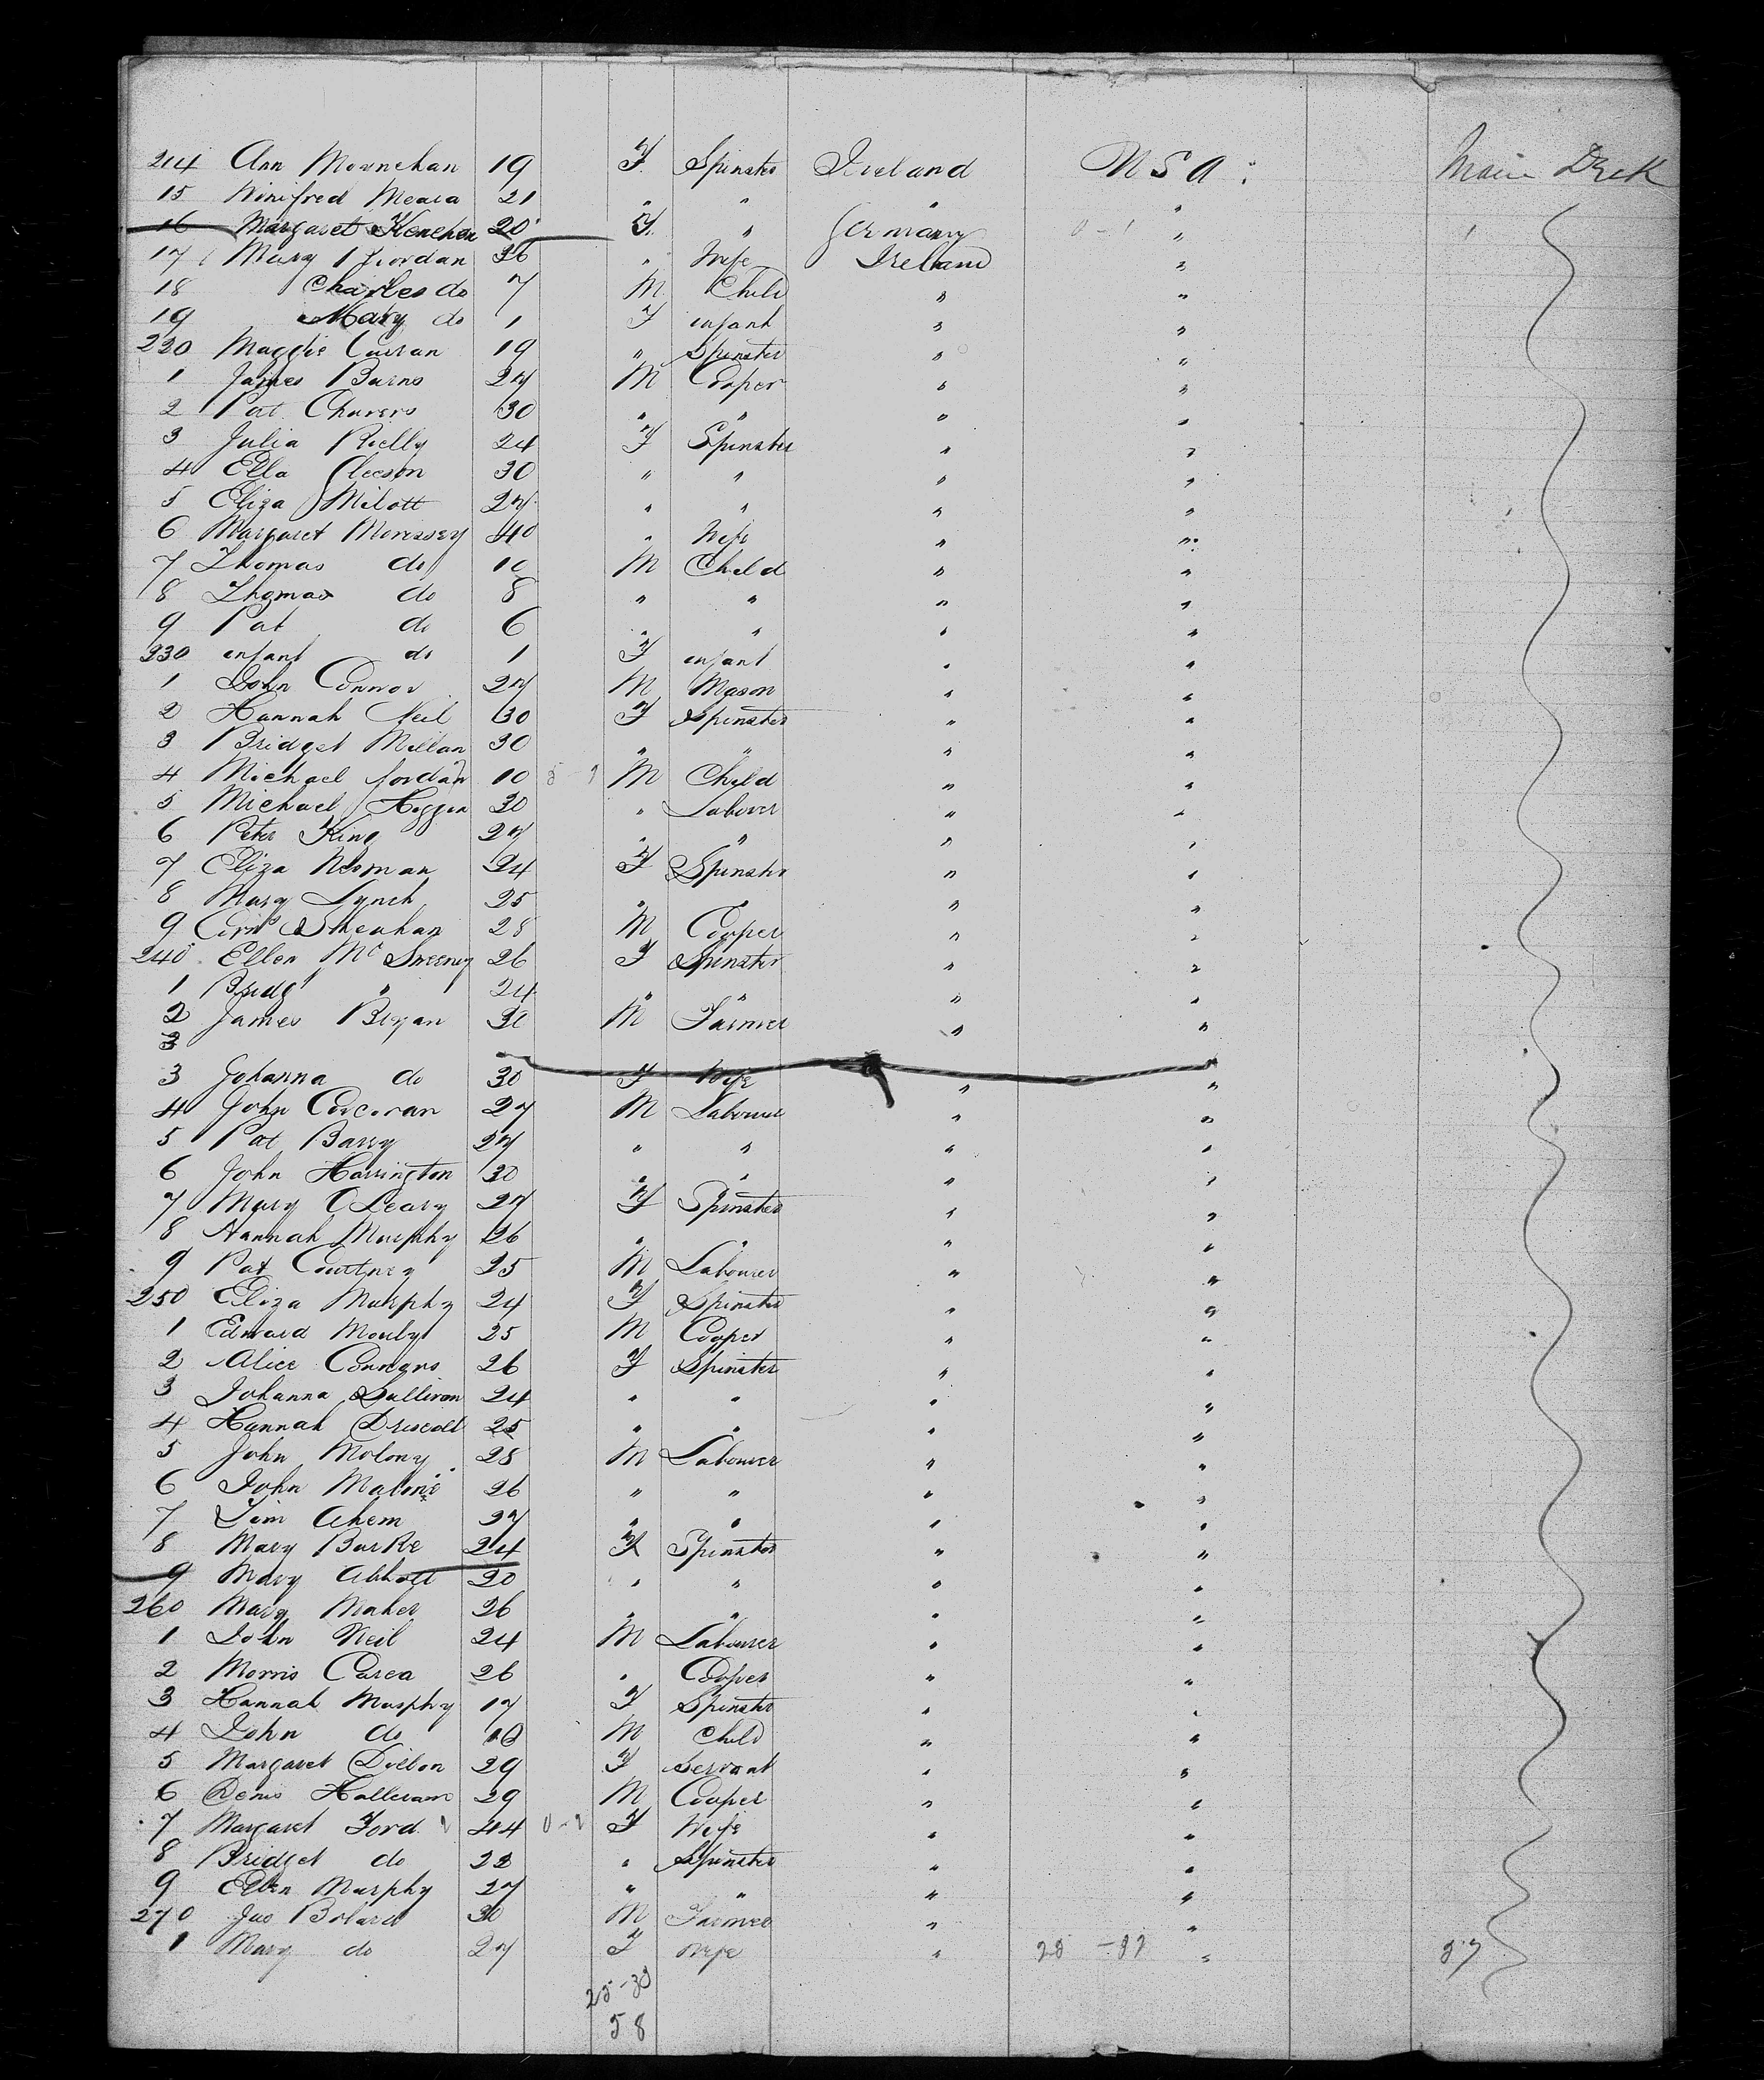 214 Ann Moonehan 19 F. Spinster Ireland USA: Main Deck
15 Winifred Meara 21 " " " "
16 Margaret 20 F. " Germany 0-1 " 1
17 Mary Jordan 36 " Wife Ireland "
18 Charles do 7 M Child " "
19 Mary do 1 F infant " "
220 Maggie Curran 19 " Spinster " "
1 James Burns 27 M Cooper " "
2 Pat 30 " " " "
3 Julia Rielly 24 F Spinster " "
4 Ella Gleeson 30 " " " "
5 Eliza Milott 27 " " " "
6 Margaret Morissey 40 " Wife " "
7 Thomas do 10 M Child " "
8 Thomas do 8 " " " "
9 Pat do 6 " " " "
230 infant do 1 F infant " "
1 John Connor 27 M Mason " "
2 Hannah Neil 30 F Spinster " "
3 Bridget Millan 30 " " " "
4 Michael Jordan 10 M Child " "
5 Michael Higgin 30 " Laborer " "
6 Peter King 27 " " " "
7 Eliza Norman 24 F Spinster " "
8 Mary Lynch 25 " " " "
9 Corns Sheahan 28 M Cooper " "
240 Ellen McSweeney 26 F Spinster " "
1 Bridg " 24 " " " "
2 James Bryan 30 M Farmer " "
3
3 Johanna do 30 F Wife " "
4 John Corcoran 27 M Labourer " "
5 Pat Barry 27 " " " "
6 John Harrington 30 " " " "
7 Mary OLeary 27 F Spinster " "
8 Hannah Murphy 26 " " " "
9 Pat Courtney 25 M Labourer " "
250 Eliza Murphy 24 F Spinster " "
1 Edward 25 M Cooper " "
2 Alice Connors 26 F Spinster " "
3 Johanna Sullivan 24 " " " "
4 Hannah Driscoll 25 " " " "
5 John Molony 28 M Labourer " "
6 John Malone 26 " " " "
7 Tim Ahern 27 " " " "
8 Mary Burke 24 F Spinster " "
9 Mary Abbott 20 " " " "
260 Mary Maher 26 " " " "
1 John Neil 24 M Labourer " "
2 Morris Carea 26 " Cooper " "
3 Hannah Murphy 17 F Spinster " "
4 John do 10 M Child " "
5 Margaret Dillon 29 F Servant " "
6 Denis Halleram 29 M Cooper " "
7 Margaret Ford 44 F Wife " "
8 Bridget do 22 " Spinster " "
9 Ellen Murphy 27 " " " "
270 Jas Boland 30 M Farmer " "
1 Mary do 27 F Wife " "
58